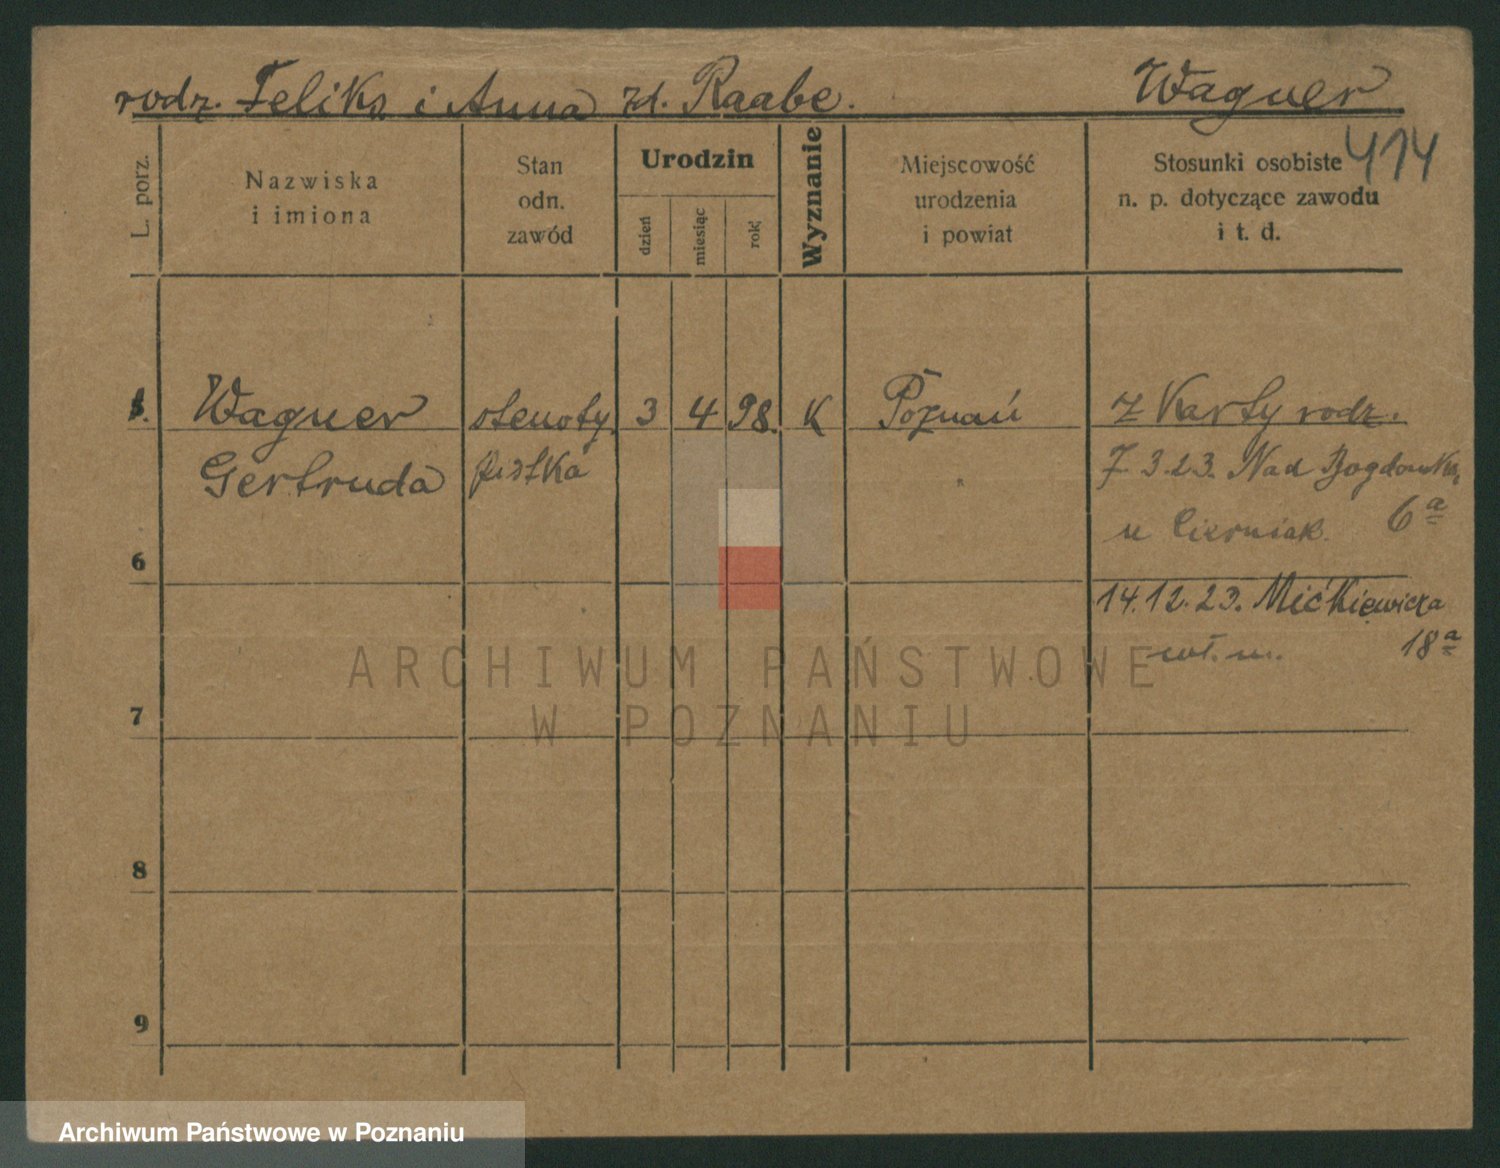 rodz. Feliks i Anna zd. Raabe. Wagner
414
L. porz.
Nazwiska
i imiona
Stan
odn.
zawód
Urodzin
dzień
miesiąc
rok
Wyznanie
Miejscowość
urodzenia
i powiat
Stosunki osobiste
n. p. dotyczące zawodu
i t. d.
Wagner stenoty 3 4 98. K Poznań z Karty rodz.
Gertruda pistka 7.3.23. Nad Bogdanką
u Cierniak. 6a
6
14.12.23. Mickiewicza
wł. m. 18a
7
8
9
ARCHIWUM PAŃSTWOWE
W POZNANIU
Archiwum Państwowe w Poznaniu